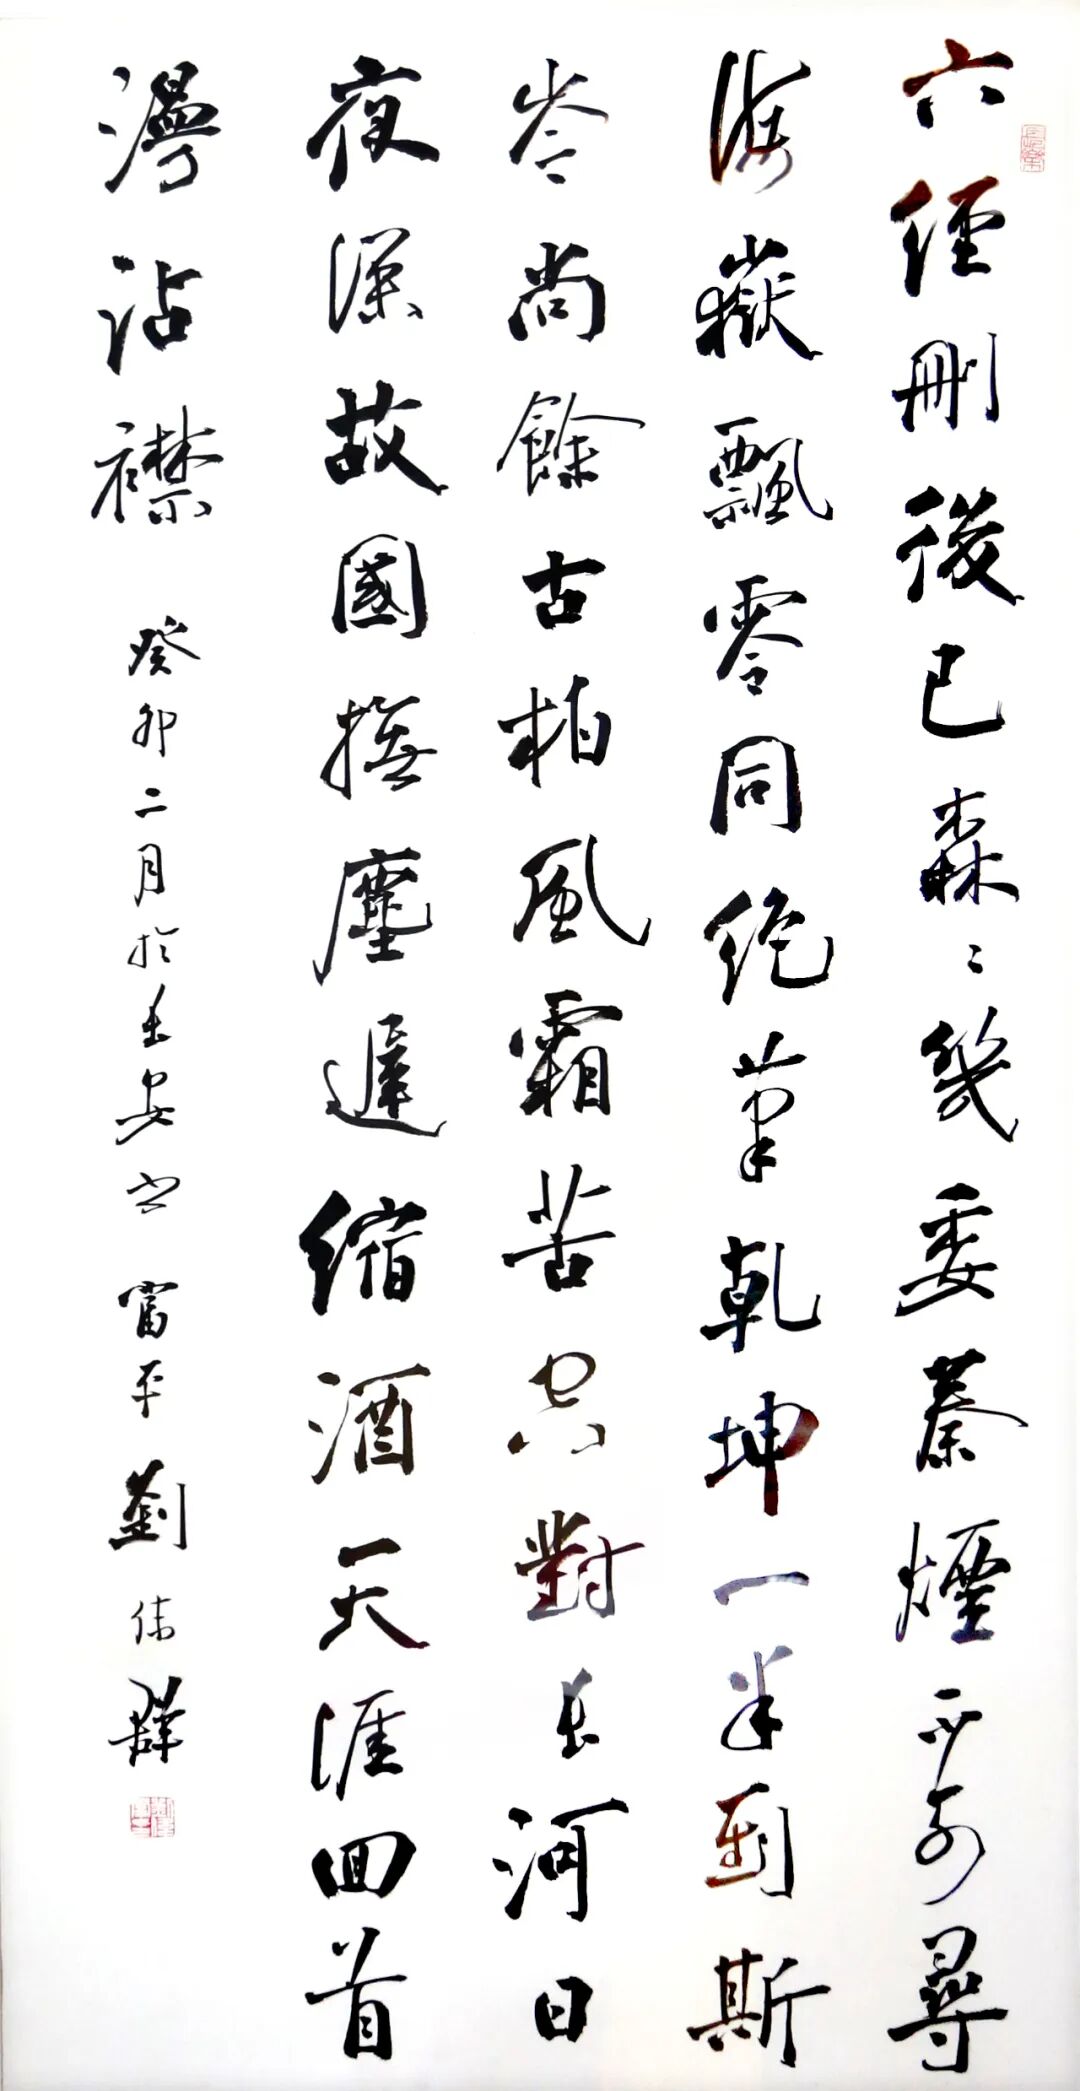 六經刪後已森〻幾委秦煙不可尋
海嶽飄零同絕筆乾坤一半到斯
岑尚餘古柏風霜苦空對長河日
夜深故國撫塵遲縮酒天涯回首
漫沾襟 癸卯二月於長安書 富平劉偉群